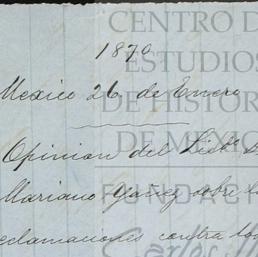 CENTRO D
ESTUDIOS
DE HISTOR
DE MÉXIC
FUNDACI
Carlos
1870
Mexico 26 de Enero
Opinion del
Mariano Yañez sobre
eclamaciones contra